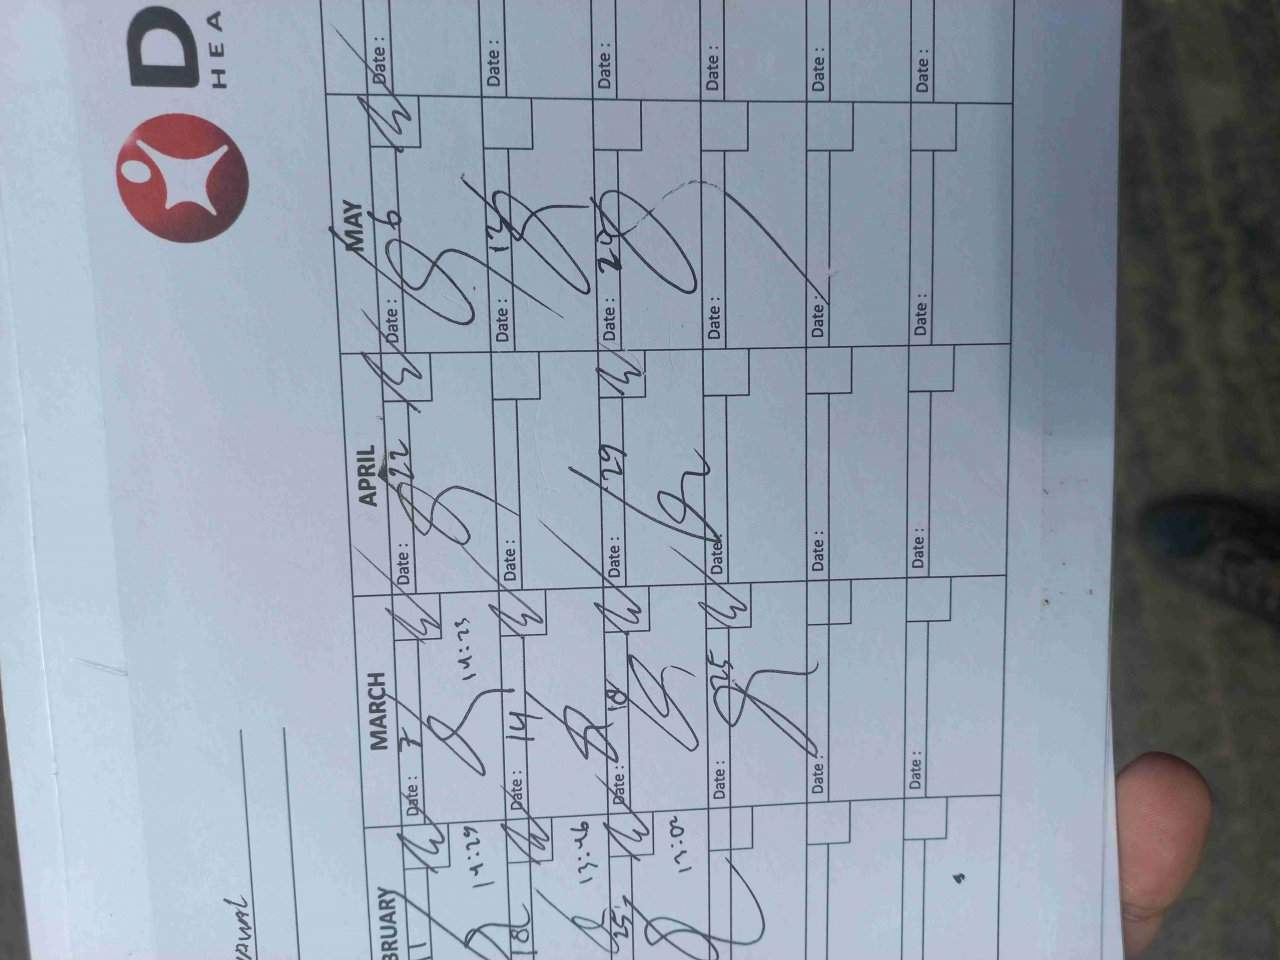 D
HEA
BRUARY
MARCH
APRIL
MAY
11
Date : 7
Date : 22
Date : 6
Date :
14:29
14:23
18
Date : 14
Date :
Date : 13
Date :
13:46
25
Date : 18
Date : 29
Date :
Date :
13:02
Date : 25
Date :
Date :
Date :
Date :
Date :
Date :
Date :
Date :
Date :
Date :
Date :